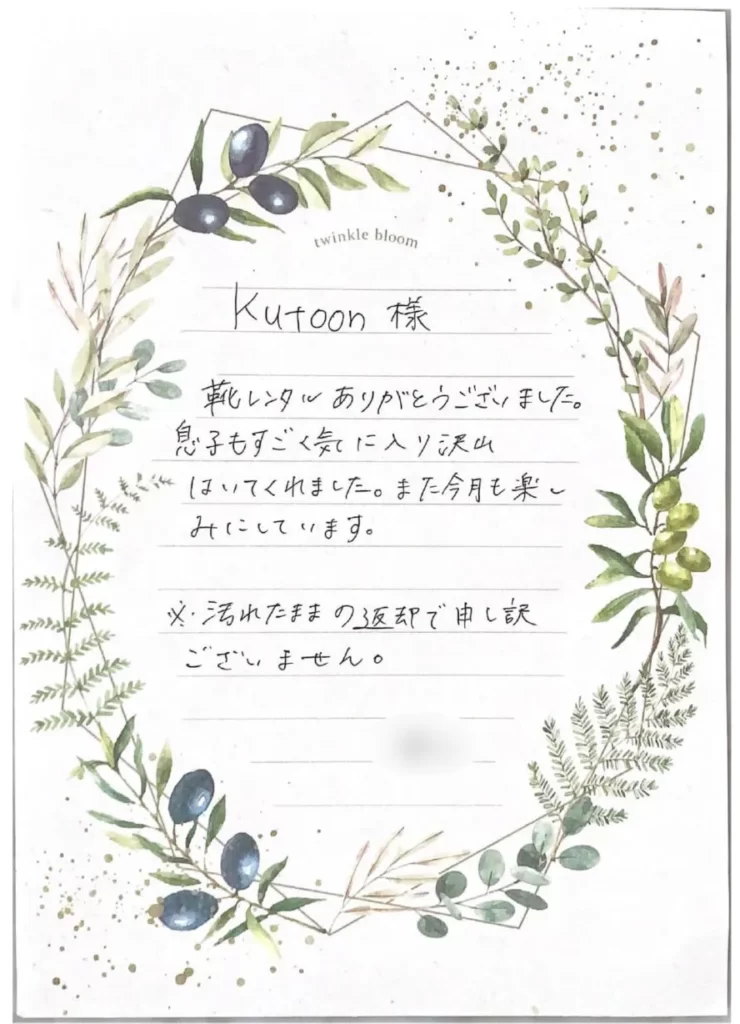 twinkle bloom
Kutoon 様
靴レンタルありがとうございました。
息子もすごく気に入り沢山
はいてくれました。また今月も楽し
みにしています。
※・汚れたままの返却で申し訳
ございません。